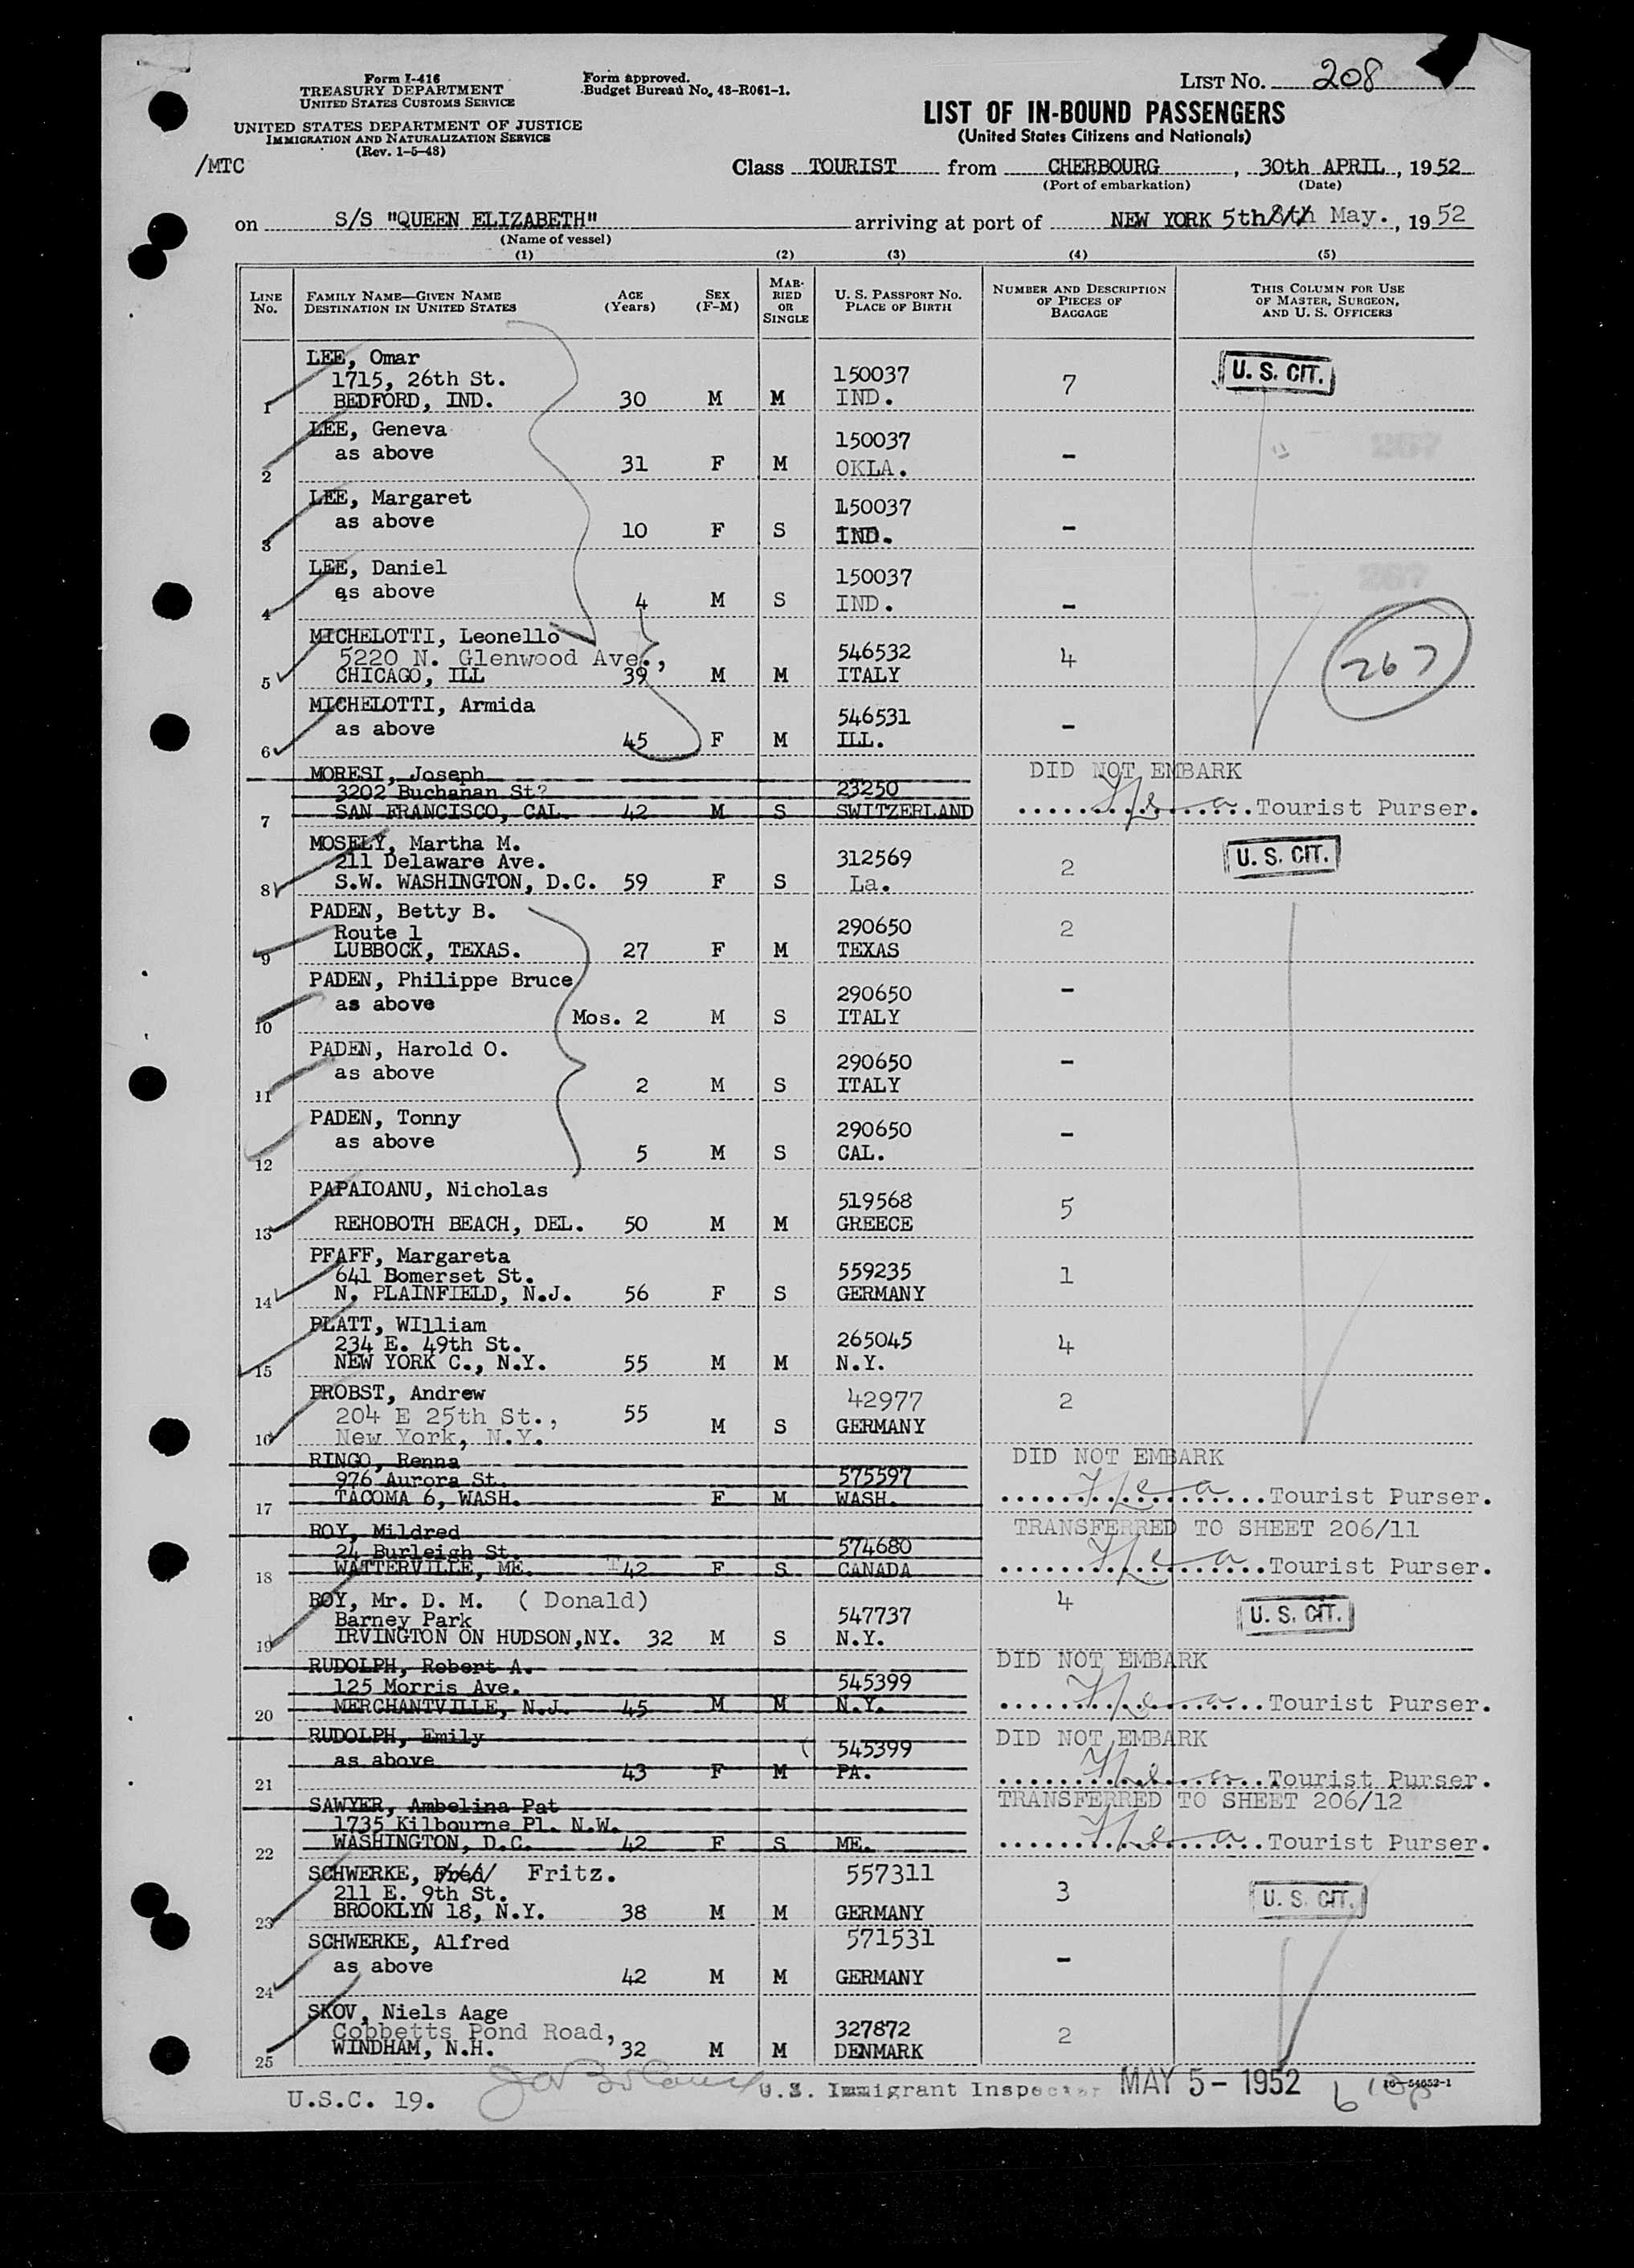 Form I-416
TREASURY DEPARTMENT
UNITED STATES CUSTOMS SERVICE
UNITED STATES DEPARTMENT OF JUSTICE
IMMIGRATION AND NATURALIZATION SERVICE
(Rev. 1-5-48)
Form approved.
Budget Bureau No. 48-R061-1.
LIST NO. 208
LIST OF IN-BOUND PASSENGERS
(United States Citizens and Nationals)
/MTC
Class TOURIST from CHERBOURG, 30th APRIL, 1952
(Port of embarkation) (Date)
on S/S "QUEEN ELIZABETH" arriving at port of NEW YORK 5th 8th May., 1952
(Name of vessel)
(1) (2) (3) (4) (5)
LINE NO. FAMILY NAME—GIVEN NAME DESTINATION IN UNITED STATES AGE (Years) SEX (F-M) MARRIED OR SINGLE U. S. PASSPORT NO. PLACE OF BIRTH NUMBER AND DESCRIPTION OF PIECES OF BAGGAGE THIS COLUMN FOR USE OF MASTER, SURGEON, AND U. S. OFFICERS
LEE, Omar
1715, 26th St. 150037 7 U. S. CIT.
1 BEDFORD, IND. 30 M M IND.
LEE, Geneva 150037
as above -
2 31 F M OKLA.
LEE, Margaret 150037
as above -
3 10 F S IND.
LEE, Daniel 150037
as above -
4 4 M S IND.
MICHELOTTI, Leonello 546532
5220 N. Glenwood Ave., 4 267
5 CHICAGO, ILL 39 M M ITALY
MICHELOTTI, Armida 546531
as above -
6 45 F M ILL.
MORESI, Joseph DID NOT EMBARK
3202 Buchanan St? 23250
7 SAN FRANCISCO, CAL. 42 M S SWITZERLAND Tourist Purser.
MOSELY, Martha M. U. S. CIT.
211 Delaware Ave. 312569 2
8 S.W. WASHINGTON, D.C. 59 F S La.
PADEN, Betty B.
Route 1 290650 2
9 LUBBOCK, TEXAS. 27 F M TEXAS
PADEN, Philippe Bruce 290650 -
as above
10 Mos. 2 M S ITALY
PADEN, Harold O. 290650 -
as above
11 2 M S ITALY
PADEN, Tonny 290650 -
as above
12 5 M S CAL.
PAPAIOANU, Nicholas 519568 5
13 REHOBOTH BEACH, DEL. 50 M M GREECE
PFAFF, Margareta
641 Bomerset St. 559235 1
14 N. PLAINFIELD, N.J. 56 F S GERMANY
PLATT, WIlliam
234 E. 49th St. 265045 4
15 NEW YORK C., N.Y. 55 M M N.Y.
PROBST, Andrew 42977 2
204 E 25th St., 55
16 New York, N.Y. M S GERMANY
RINGO, Renna DID NOT EMBARK
976 Aurora St. 575597
17 TACOMA 6, WASH. F M WASH. Tourist Purser.
ROY, Mildred TRANSFERRED TO SHEET 206/11
24 Burleigh St. 574680
18 WATTERVILLE, ME. 42 F S CANADA Tourist Purser.
ROY, Mr. D. M. ( Donald) 4 U. S. CIT.
Barney Park 547737
19 IRVINGTON ON HUDSON,NY. 32 M S N.Y.
RUDOLPH, Robert A. DID NOT EMBARK
125 Morris Ave. 545399
20 MERCHANTVILLE, N.J. 45 M M N.Y. Tourist Purser.
RUDOLPH, Emily 545399 DID NOT EMBARK
as above
21 43 F M PA. Tourist Purser.
SAWYER, Ambelina Pat TRANSFERRED TO SHEET 206/12
1735 Kilbourne Pl. N.W.
22 WASHINGTON, D.C. 42 F S ME. Tourist Purser.
SCHWERKE, Fred Fritz. 557311
211 E. 9th St. 3 U. S. CIT.
23 BROOKLYN 18, N.Y. 38 M M GERMANY
SCHWERKE, Alfred 571531
as above -
24 42 M M GERMANY
SKOV, Niels Aage
Cobbetts Pond Road, 327872 2
25 WINDHAM, N.H. 32 M M DENMARK
U.S.C. 19. U.S. Immigrant Inspector MAY 5 - 1952 16—54652-1